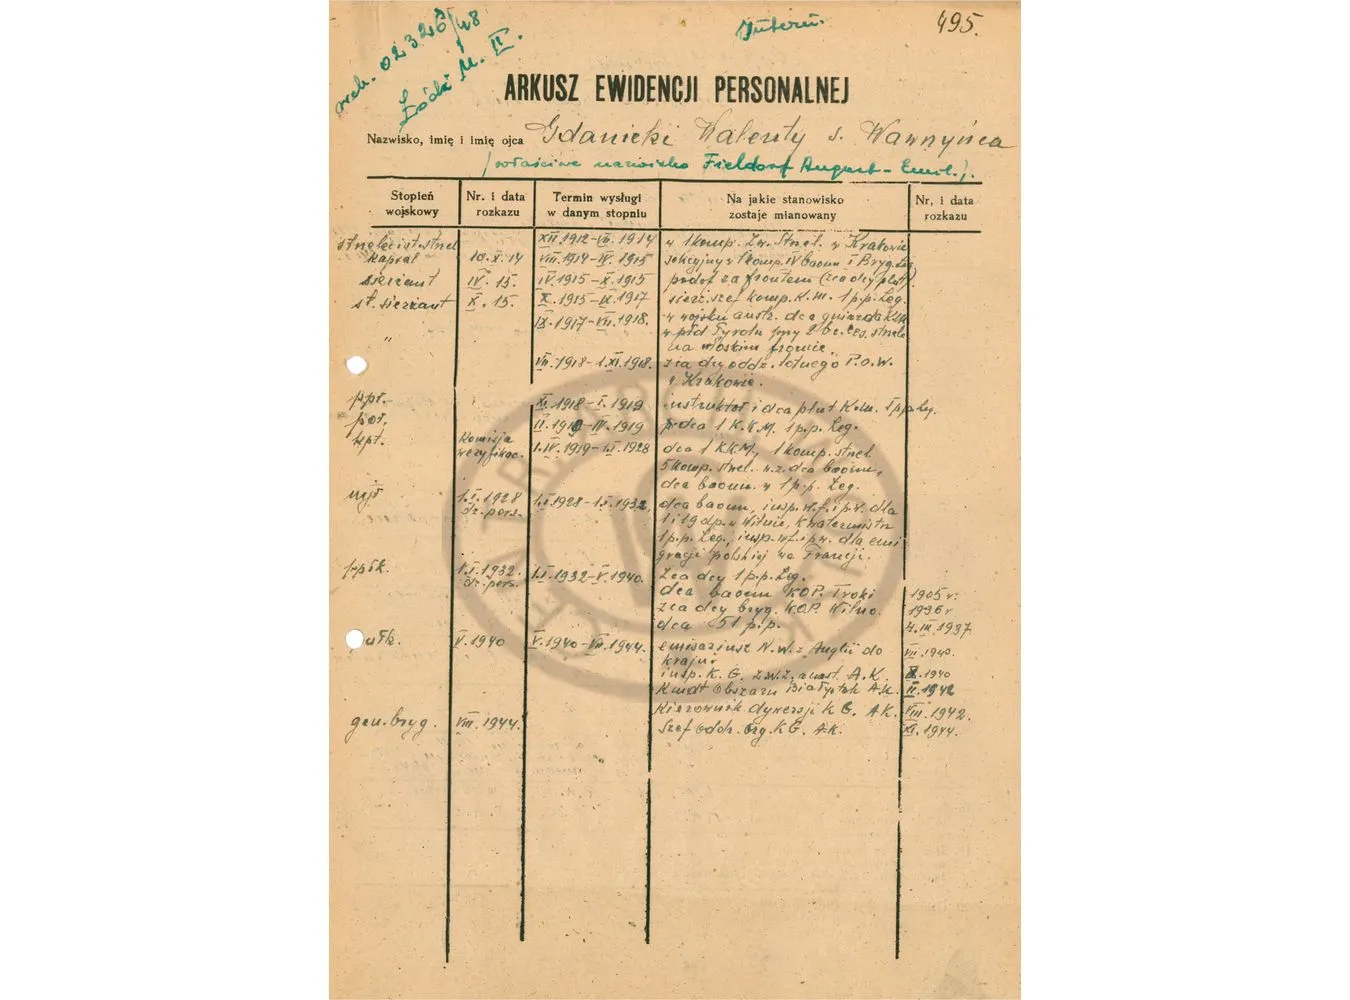 wch. 02326/48
Łódź M. II.
Intern.
495.
ARKUSZ EWIDENCJI PERSONALNEJ
Nazwisko, imię i imię ojca Gdanicki Walenty s. Wawrzyńca
(właściwe nazwisko Fieldorf August-Emil.).
Stopień wojskowy
Nr. i data rozkazu
Termin wysługi w danym stopniu
Na jakie stanowisko zostaje mianowany
Nr, i data rozkazu
XII.1912-VII.1914 w 1 komp. Zw. Strzel. w Krakowie
kapral 10.X.14 VIII.1914-IV.1915 sekcyjny w 1 komp. IV baonu I Bryg. Leg.
sierżant IV.15. IV.1915-X.1915 podof. za frontem (zca dcy plut).
st. sierżant X.15. X.1915-IX.1917 sierż. szef komp. K.M. 1 p.p. Leg.
IX.1917-VII.1918. w wojsku austr. dca gniazda K.M.
na włoskim froncie
" VII.1918-1.XI.1918. zca dcy oddz. lotnego P.O.W.
w Krakowie.
ppr.- XI.1918-I.1919 instruktor i dca plut K.M. 1 pp Leg.
por. II.1919-IV.1919 dca 1 K.K.M. 1 p.p. Leg.
kpt. Komisja weryfikac. 1.IV.1919-1.I.1928 dca 1 KKM, 1 komp. strzel.
5 komp. strzel. w.z. dca baonu,
dca baonu w 1 p.p. Leg.
mjr 1.I.1928 dz. pers. 1.I.1928-1.I.1932, dca baonu, insp. w.f. i p.w. dla
1 i 19 dp. w Wilnie, Kwatermistrz
1 p.p. Leg., insp. w.f. i p.w. dla emi
gracji polskiej we Francji.
ppłk. 1.I.1932. dz. pers. 1.I.1932-V.1940. Zca dcy 1 p.p. Leg.
dca baonu KOP. Troki 1935 r.
zca dcy bryg. KOP. Wilno. 1936 r
dca 51 p.p. III.1937
płk. V.1940 V.1940-VII.1944. emisariusz N.W. z Anglii do
kraju VII.1940.
insp. K.G. Z.W.Z, nast. A.K. X.1940
Kmdt Obszaru Białystok A.K. II.1942
Kierownik dywersji K.G. A.K. VIII.1942.
gen. bryg. VIII.1944. Szef oddz. org. K.G. A.K. XI.1944.